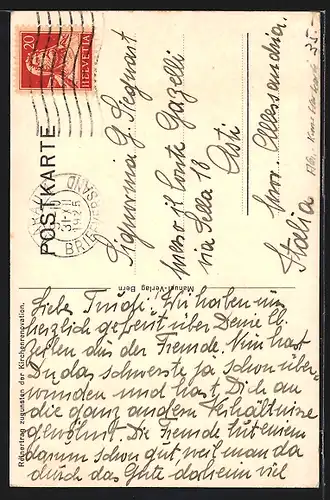 POSTKARTE
20
HELVETIA
31.VII
1925
BRIEFVERSAND
Signorina G. Siegwart
presso il Conte Gazelli
via Sella 18
Asti
prov. Alessandria.
Italia
35.-
Manuel-Verlag Bern
Reinertrag zugunsten der Kirchenrenovation.
Liebe Trudi! Wir haben uns
herzlich gefreut über Deine lb.
Zeilen aus der Fremde. Nun hast
Du das schwerste ja schon über-
wunden und hast Dich an
die ganz andern Verhältnisse
gewöhnt. Die Fremde tut einem
darum schon gut, weil man da
durch das Gute daheim viel